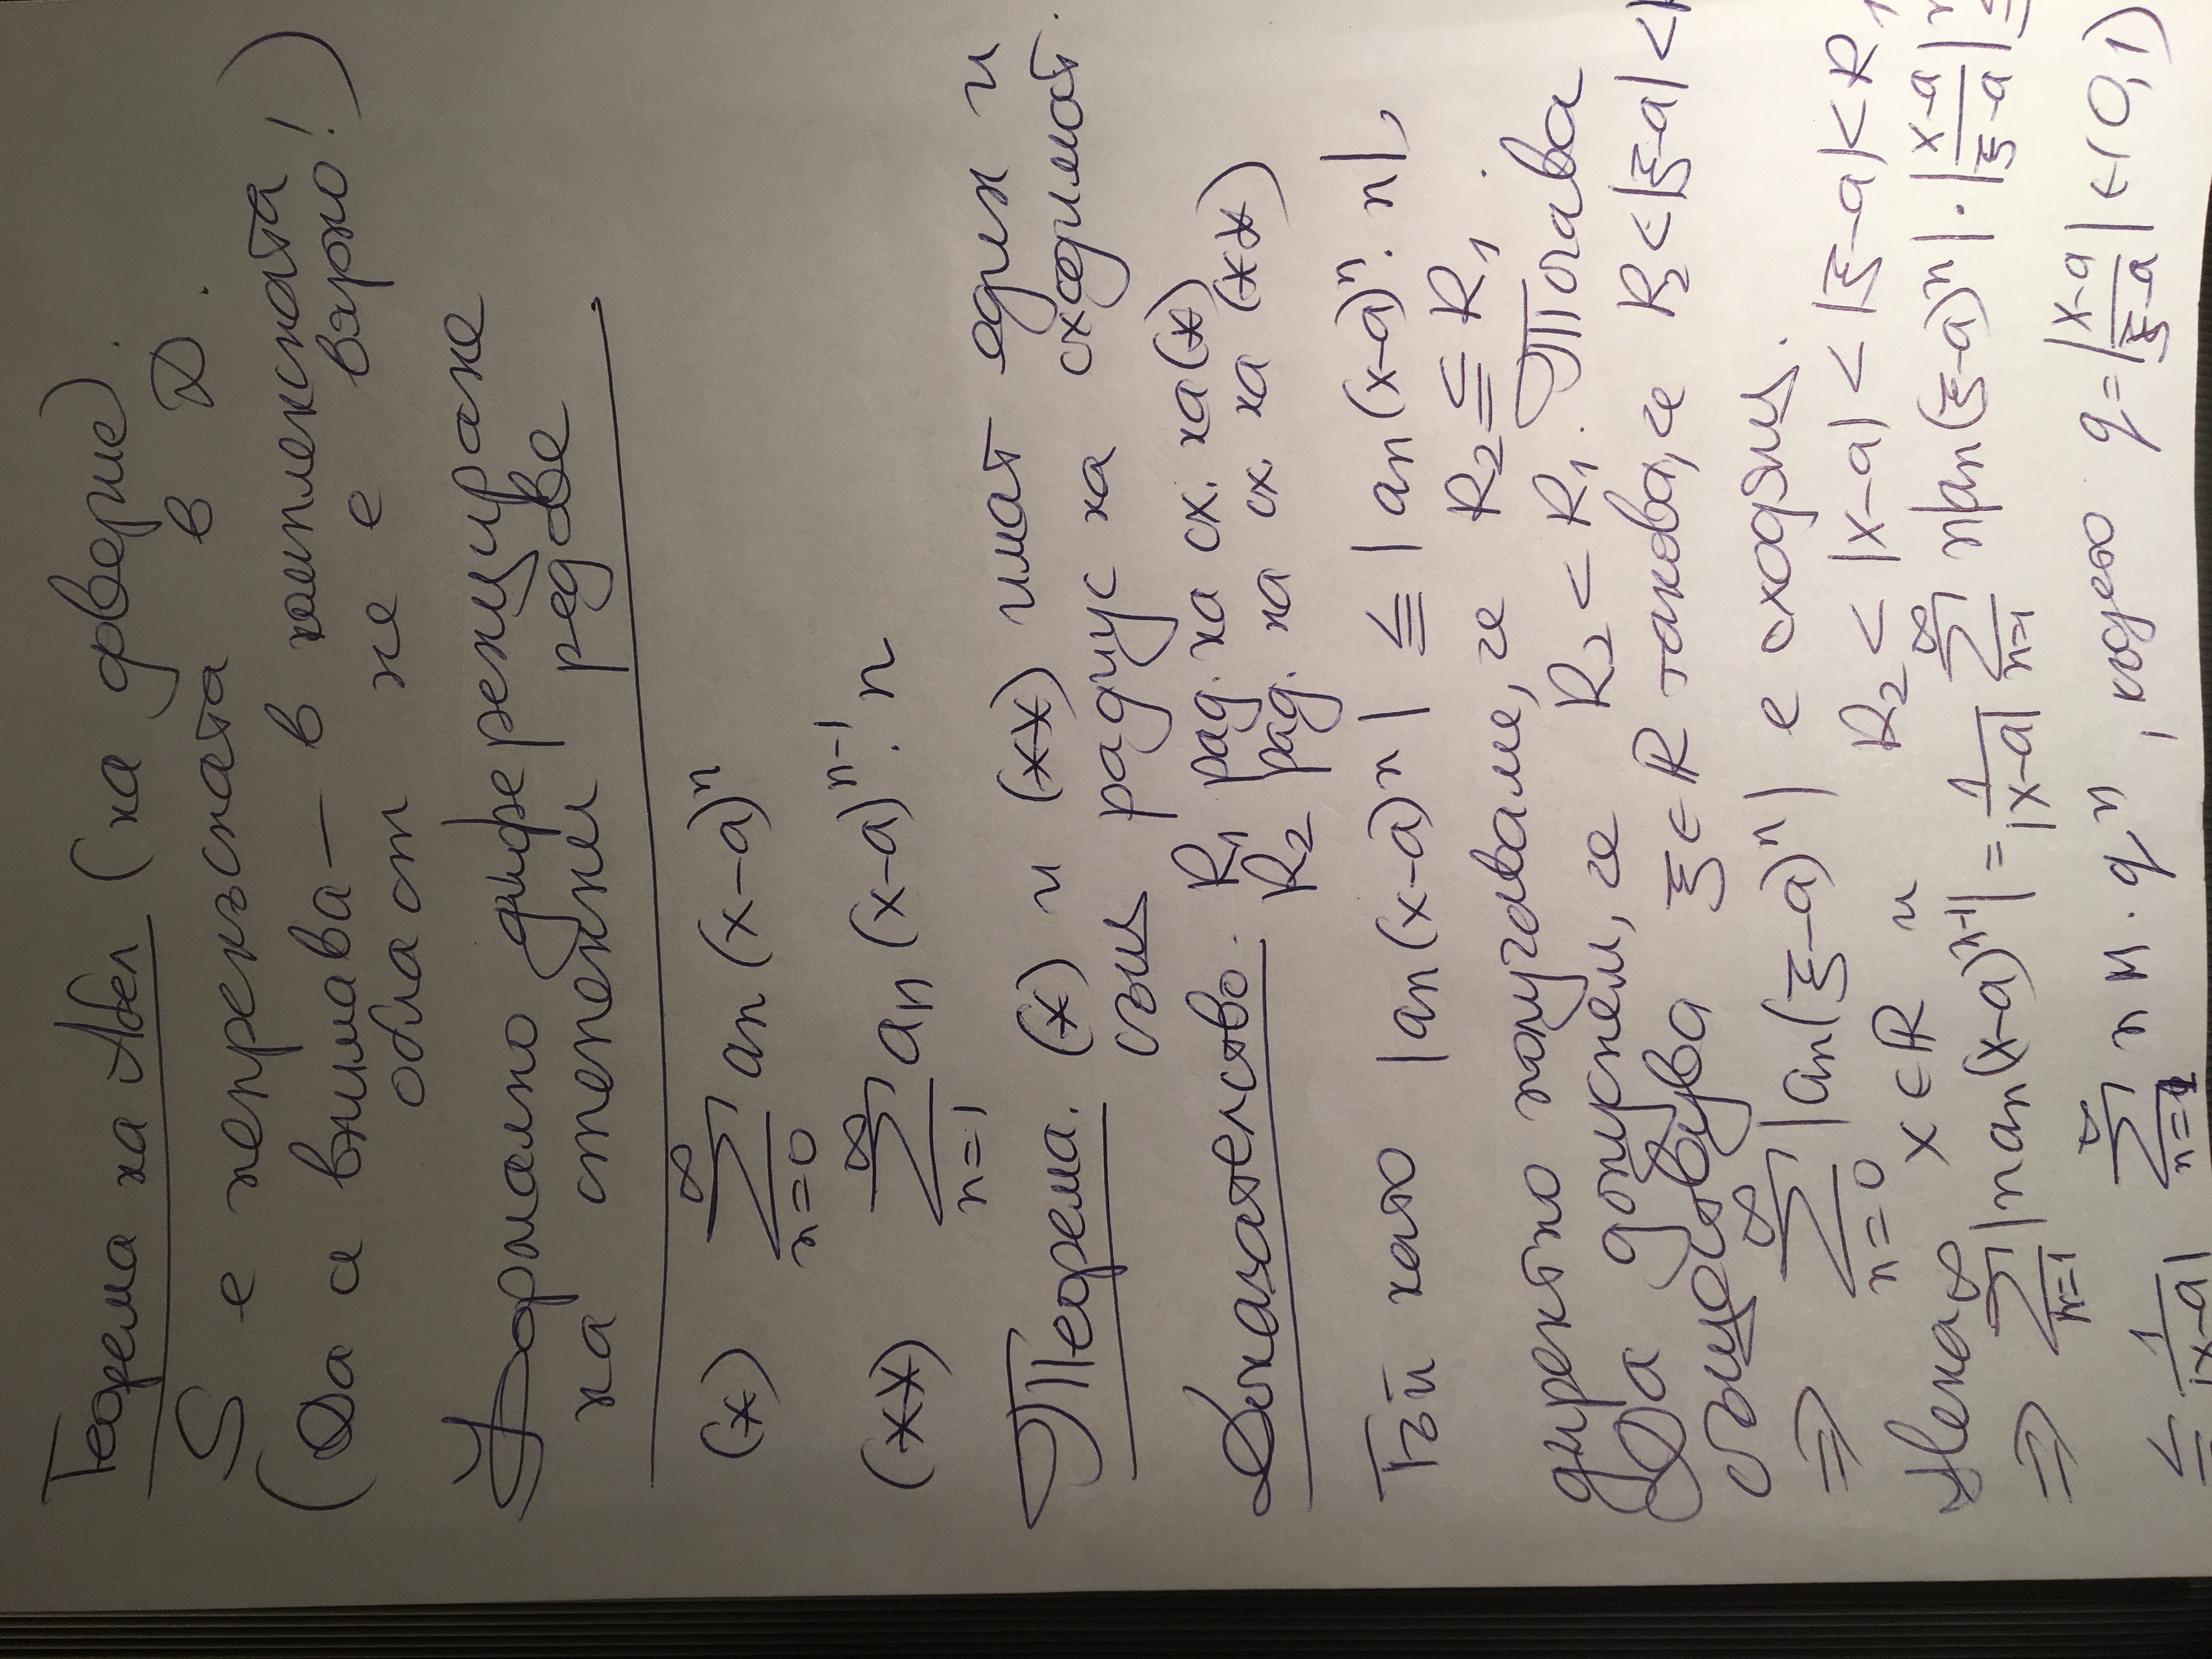 Теорема на Абел (на доверие).
S е непрекъсната в D.
(Да се внимава — в комплексната
област не е вярно!)
Формално диференциране
на степенни редове
(*) ∑_{n=0}^{∞} aₙ(x-a)ⁿ
(**) ∑_{n=1}^{∞} aₙ(x-a)ⁿ⁻¹. n
Теорема. (*) и (**) имат един и
същ радиус на сходимост.
Доказателство. R₁ рад. на сх. на (*)
R₂ рад. на сх. на (**)
Тъй като |aₙ(x-a)ⁿ| ≦ |aₙ(x-a)ⁿ. n|,
директно получаваме, че R₂ ≦ R₁.
Да допуснем, че R₂ < R₁. Тогава
съществува ξ∈ℝ такова, че R₂<|ξ-a|<
⇒ ∑_{n=0}^{∞} |aₙ(ξ-a)ⁿ| е сходящ.
Нека x∈ℝ и R₂ < |x-a| < |ξ-a| < R₁
⇒ ∑_{n=1}^{∞} |n aₙ(x-a)ⁿ⁻¹| = 1/|x-a| ∑_{n=1}^{∞} n|aₙ(ξ-a)ⁿ| · |(x-a)/(ξ-a)|ⁿ ≦
≦ 1/|x-a| ∑_{n=1}^{∞} n M . qⁿ, където q=|(x-a)/(ξ-a)| ∈(0,1)